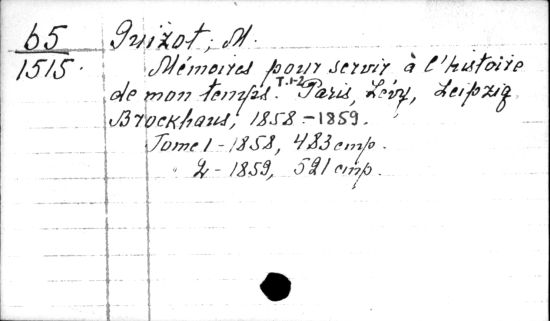 65 Guizot, M.
1515. Mémoires pour servir à l'histoire
de mon temps. T.1-2 Paris, Lévy, Leipzig
Brockhaus, 1858-1859.
Tome 1 - 1858, 483 стр.
" 2 - 1859, 521 стр.